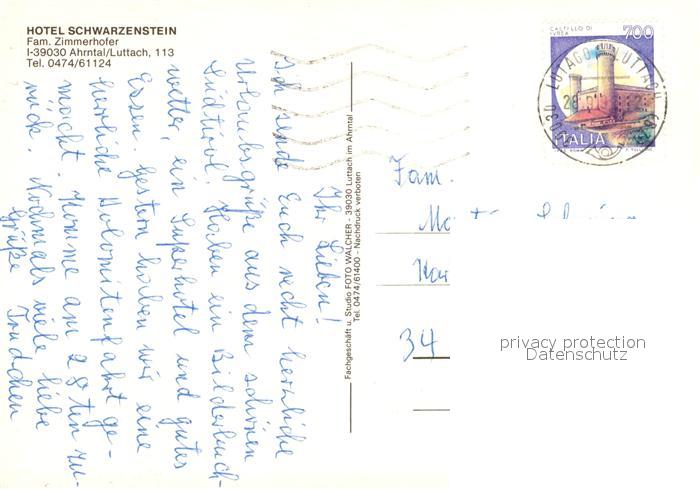 HOTEL SCHWARZENSTEIN
Fam. Zimmerhofer
I-39030 Ahrntal/Luttach, 113
Tel. 0474/61124
Ihr Lieben!
Ich sende Euch recht herzliche
Urlaubsgrüße aus dem schönen
Südtirol. Haben ein Bilderbuch-
wetter, ein Superhotel und gutes
Essen. Gestern haben wir eine
herrliche Dolomitenfahrt ge-
macht. Komme am 28ten zu-
rück. Nochmals viele liebe
Grüße Trudchen
Fachgeschäft u. Studio FOTO WALCHER - 39030 Luttach im Ahrntal
Tel. 0474/61400 - Nachdruck verboten
CASTELLO DI
IVREA
700
ITALIA
LUTAGO LUTTACH
Fam.
34
privacy protection
Datenschutz